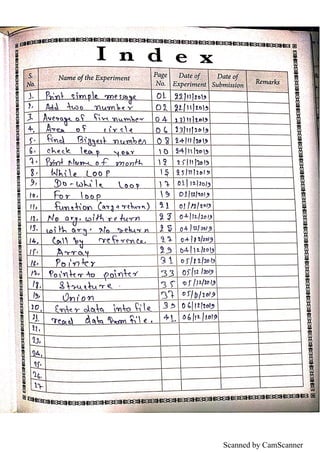 Index
S. No. Name of the Experiment Page No. Date of Experiment Date of Submission Remarks
1. Print simple message 01 22/11/2019
2. Add two number 02 22/11/2019
3. Average of five number 04 22/11/2019
4. Area of circle 06 23/11/2019
5. Find Biggest number 08 24/11/2019
6. check leap year 10 24/11/2019
7. Print Name of month 12 25/11/2019
8. While Loop 15 25/11/2019
9. Do-while Loop 17 01/12/2019
10. For loop 19 01/12/2019
11. Function (arg+return) 21 01/12/2019
12. No arg. with return 23 04/12/2019
13. with arg. No return 25 04/12/2019
14. Call by reference. 27 04/12/2019
15. Array 29 04/12/2019
16. Pointer 31 05/12/2019
17. Pointer to pointer 33 05/12/2019
18. Structure. 35 05/12/2019
19. Union 37 05/12/2019
20. Enter data into file 39 06/12/2019
21. read data from file. 41. 06/12/2019
23.
24.
25.
26.
27
Scanned by CamScanner